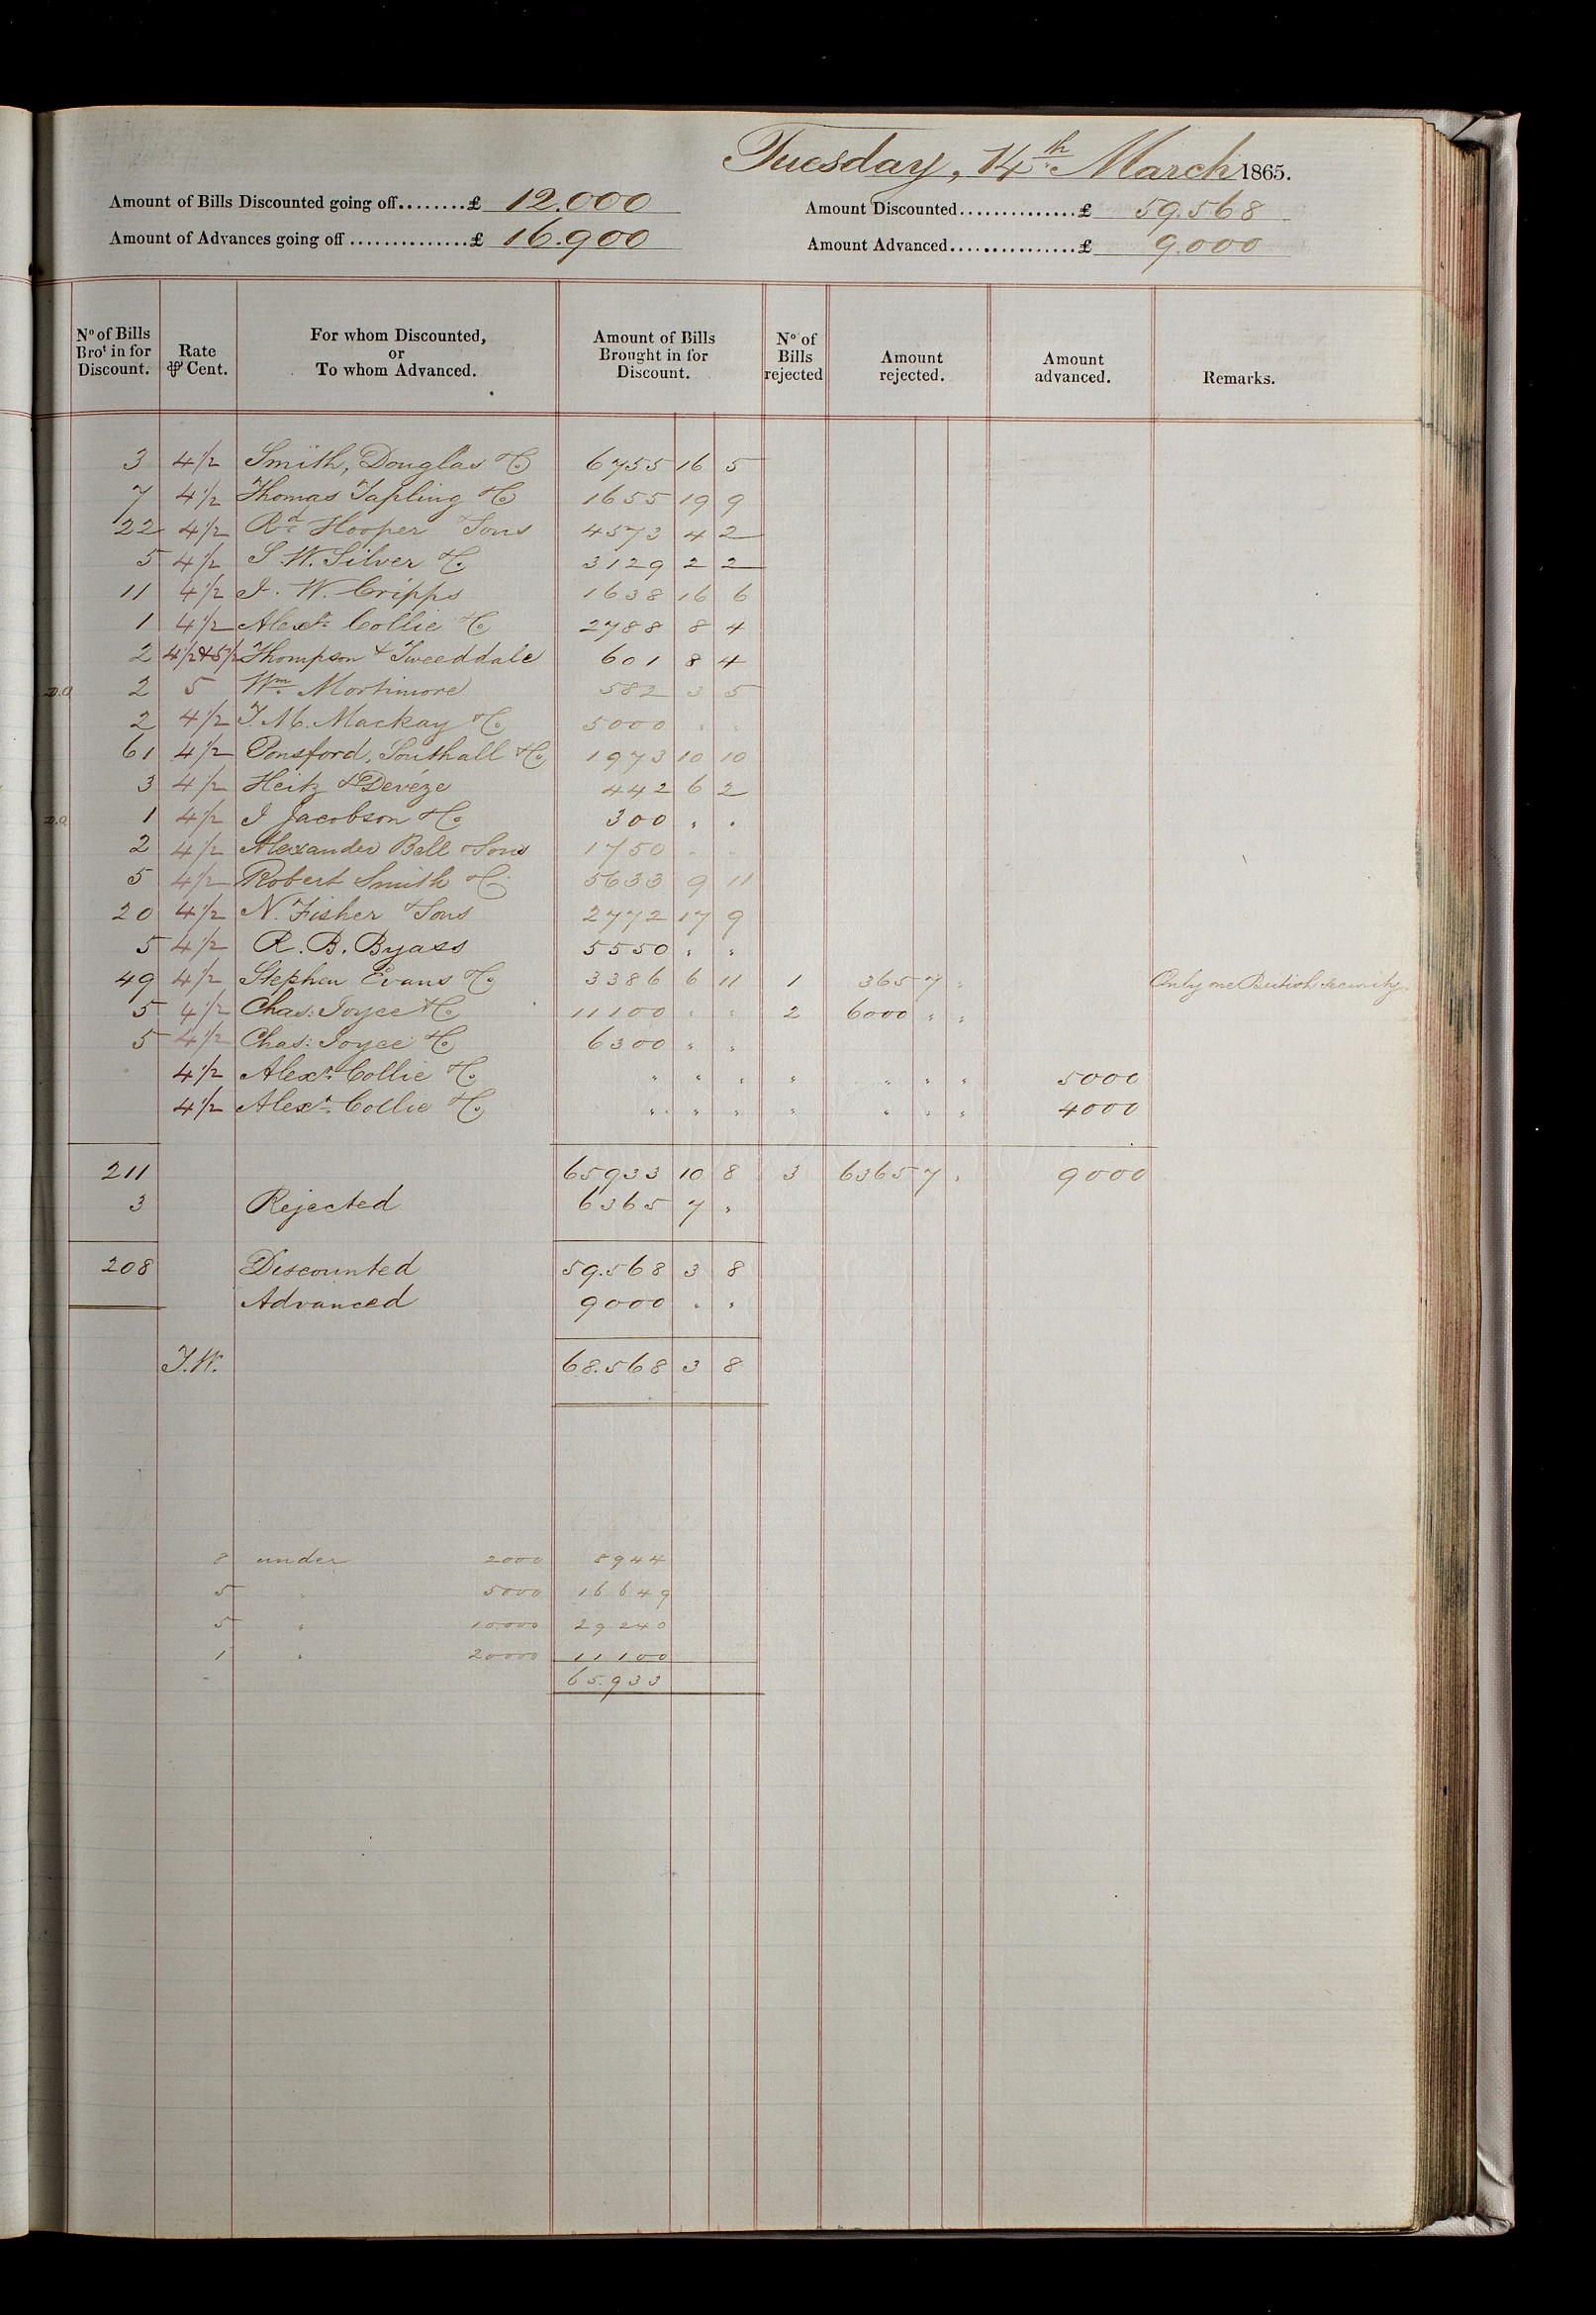 Tuesday, 14th March 1865.
Amount of Bills Discounted going off........£ 12.000
Amount Discounted..............£ 59.568
Amount of Advances going off...............£ 16.900
Amount Advanced...............£ 9.000
No of Bills Brot in for Discount.
Rate ⅌ Cent.
For whom Discounted, or To whom Advanced.
Amount of Bills Brought in for Discount.
No of Bills rejected
Amount rejected.
Amount advanced.
Remarks.
3 4½ Smith, Douglas & Co 6755 16 5
7 4½ Thomas Tapling & Co 1655 19 9
22 4½ Rd Hooper & Sons 4573 4 2
5 4½ S. W. Silver & Co 3129 2 2
11 4½ J. W. Cripps 1638 16 6
1 4½ Alexr Collie & Co 2788 8 4
2 4½&5½ Thompson & Tweeddale 601 8 4
2 5 Wm Mortimore 582 3 5
2 4½ T. M. Mackay & Co 5000 " "
61 4½ Ponsford, Southall & Co 1973 10 10
3 4½ Heitz & Devéze 442 6 2
1 4½ J Jacobson & Co 300 " "
2 4½ Alexander Bell & Sons 1750 " "
5 4½ Robert Smith & Co 5633 9 11
20 4½ N. Fisher & Sons 2772 17 9
5 4½ R. B. Byass 5550 " "
49 4½ Stephen Evans & Co 3386 6 11 1 365 7 " Only one British Security.
5 4½ Chas: Joyce & Co 11100 " " 2 6000 " "
5 4½ Chas: Joyce & Co 6300 " "
4½ Alexr Collie & Co " " " " " " " 5000
4½ Alexr Collie & Co " " " " " " " 4000
211 65933 10 8 3 6365 7 " 9000
3 Rejected 6365 7 "
208 Discounted 59.568 3 8
Advanced 9000 " "
T.W. 68.568 3 8
8 under 2000 8944
5 " 5000 16649
5 " 10.000 29240
1 " 20000 11100
65.933